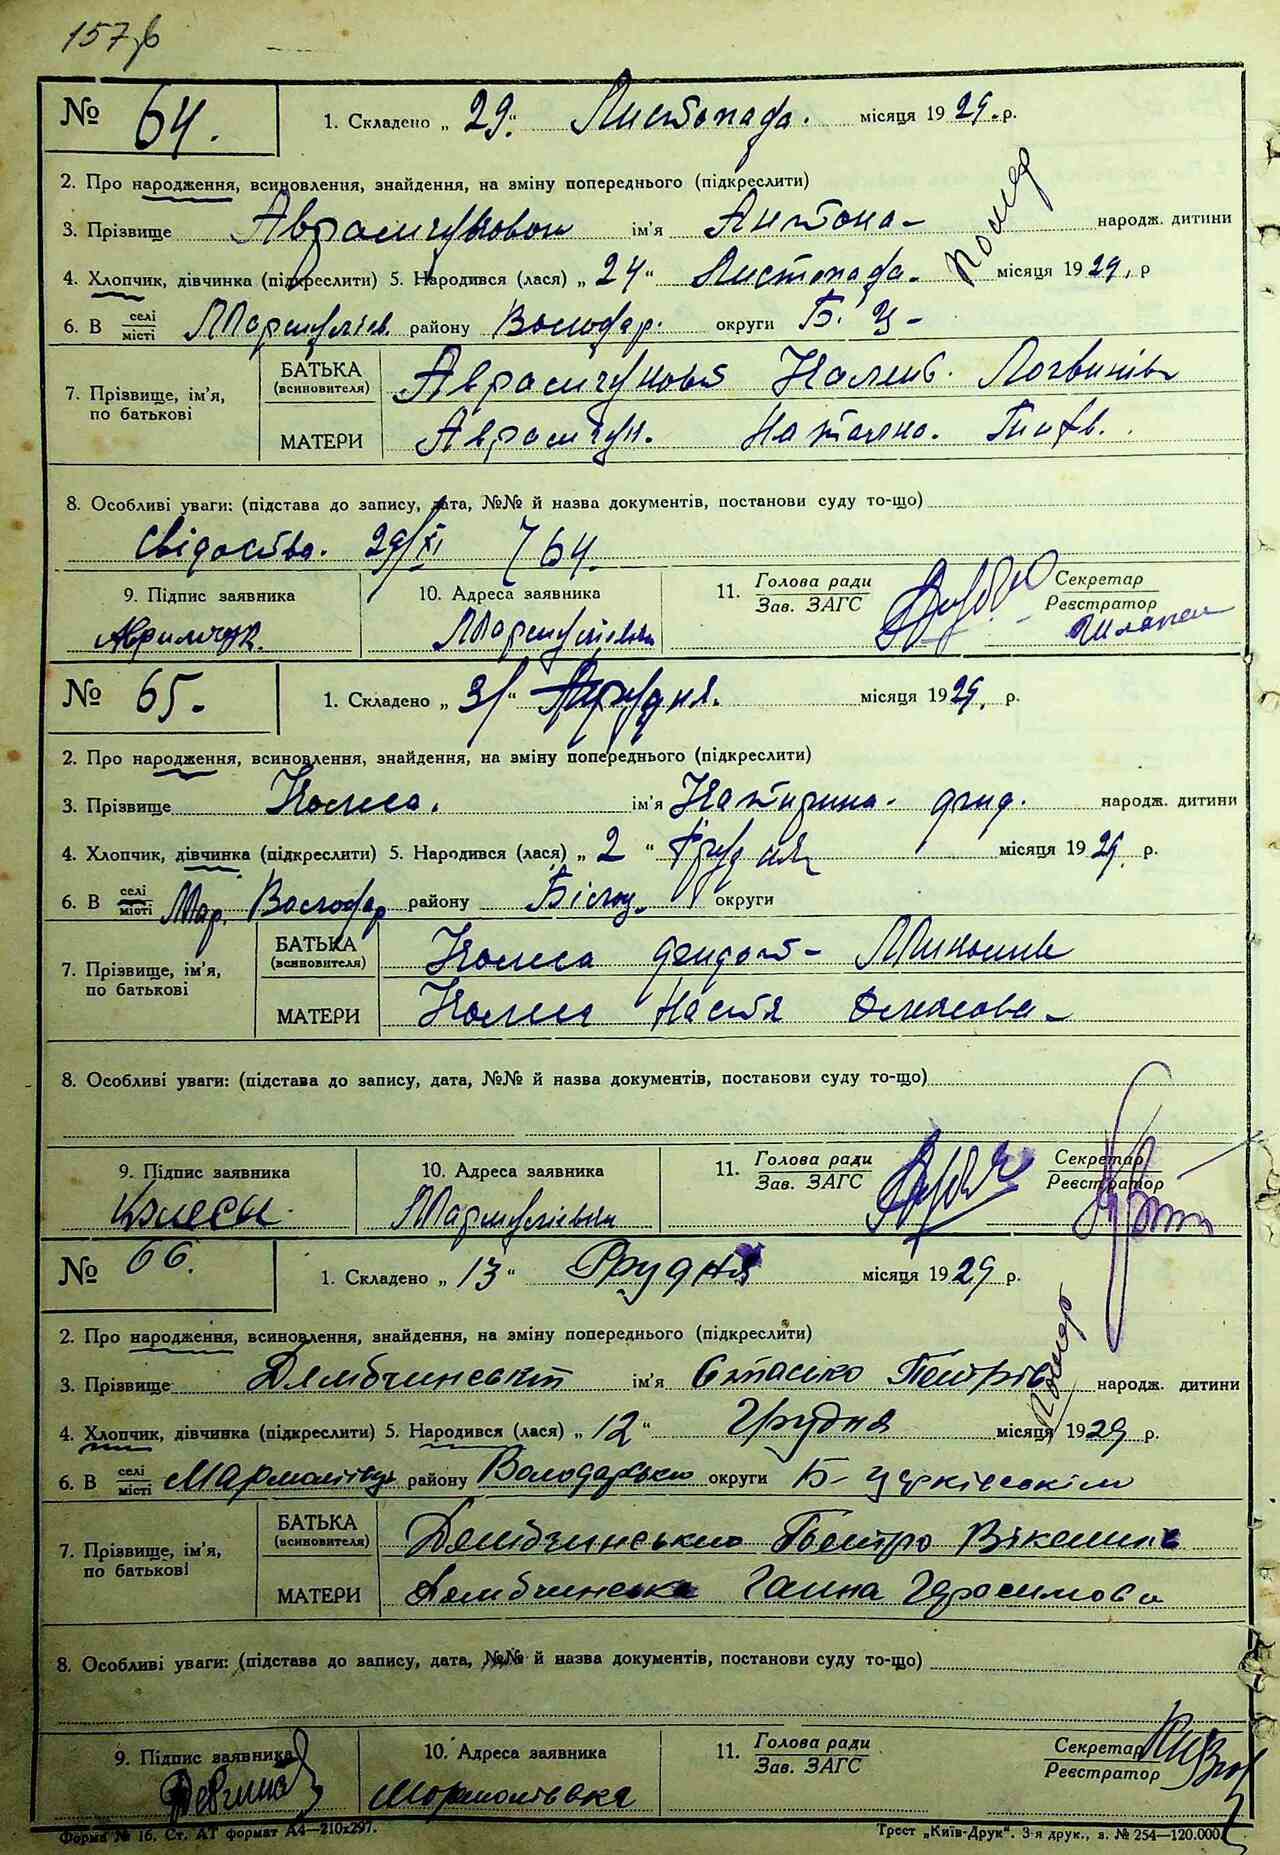 157
№ 64. 1. Складено „ 29 " Листопада. місяця 19 29. р.
2. Про народження, всиновлення, знайдення, на зміну попереднього (підкреслити)
3. Прізвище ім'я Антона народж. дитини
Помер
4. Хлопчик, дівчинка (підкреслити) 5. Народився (лася) „ 24 " Листопада. місяця 19 29. р
6. В селі/місті району Володар. округи Б. Ц
7. Прізвище, ім'я, по батькові
БАТЬКА (всиновителя) Логвинів
МАТЕРИ Аврамчук.
8. Особливі уваги: (підстава до запису, дата, №№ й назва документів, постанови суду то-що)
Свідоства. 29/XI 764.
9. Підпис заявника 10. Адреса заявника 11. Голова ради Секретар
Зав. ЗАГС Реєстратор
Мармуліївки
№ 65. 1. Складено „ " Грудня. місяця 19 29. р.
2. Про народження, всиновлення, знайдення, на зміну попереднього (підкреслити)
3. Прізвище Колеса. ім'я Катирина. народж. дитини
4. Хлопчик, дівчинка (підкреслити) 5. Народився (лася) „ 2 " Грудня місяця 19 29. р.
6. В селі/місті Мар. Володар району Білоц. округи
7. Прізвище, ім'я, по батькові
БАТЬКА (всиновителя) Колеса
МАТЕРИ Колеса Настя
8. Особливі уваги: (підстава до запису, дата, №№ й назва документів, постанови суду то-що)
9. Підпис заявника 10. Адреса заявника 11. Голова ради Секретар
Зав. ЗАГС Реєстратор
Колесы Мармуліївки
№ 66. 1. Складено „ 13 " Грудня місяця 19 29 р.
2. Про народження, всиновлення, знайдення, на зміну попереднього (підкреслити)
3. Прізвище ім'я Стасько Петрів народж. дитини
Помер
4. Хлопчик, дівчинка (підкреслити) 5. Народився (лася) „ 12 " Грудня місяця 19 29 р.
6. В селі/місті району Володарсько округи Б-Церківськім
7. Прізвище, ім'я, по батькові
БАТЬКА (всиновителя) Петро
МАТЕРИ Ганна Герасимова
8. Особливі уваги: (підстава до запису, дата, №№ й назва документів, постанови суду то-що)
9. Підпис заявника 10. Адреса заявника 11. Голова ради Секретар
Зав. ЗАГС Реєстратор
Мормолівка
Форма № 16. Ст. АТ формат А4—210x297. Трест „Київ-Друк". 3-я друк., з. № 254—120.000.